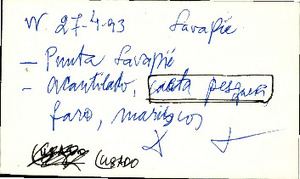 W 27-4-93 Lavapié
— Punta Lavapié
— acantilado, caleta pesquera
faro, mariscos
X X
(USADO